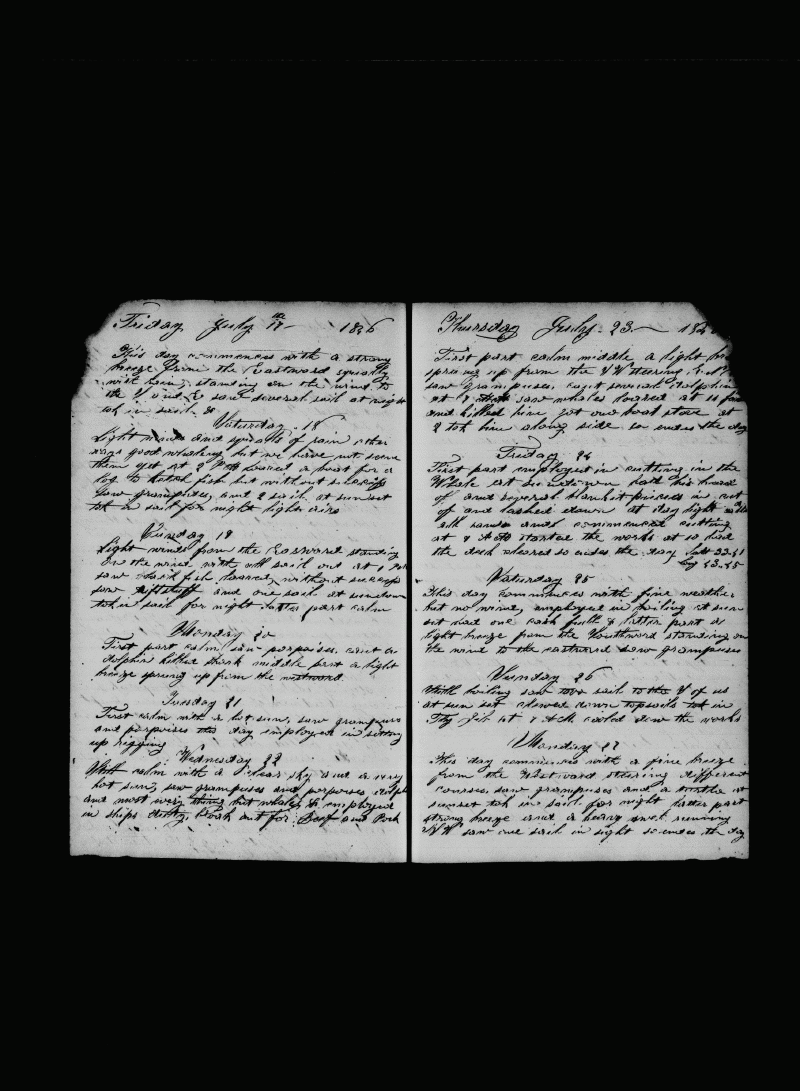 Friday July 17 1846
This day commences with a strong
breeze from the Eastward squally
with rain, standing on the wind to
the S and E saw several sail at night
tok in sail
Saturday 18
Light winds and squalls of rain other
ways good whaling but we have not seen
them yet at 2 PM lowered a boat for a
log to ketch fish but without success
saw grampuses, and 2 sail at sunset
tok in sail for night
Sunday 19
Light winds from the Eastward standing
on the wind with all sail out at 1 PM
saw black fish lowered, without success
saw and one sail at sundown
tok in sail for night latter part calm
Monday 20
First part calm saw porpoises, caut a
dolphin killed shark middle part a light
breeze sprung up from the westward.
Tuesday 21
First calm with a hot sun, saw grampuses
and porpoises this day employed in setting
up rigging
Wednesday 22
Still calm with a clear sky and a very
hot sun, saw grampuses and porpoises
and most every thing but whales & employed
in ships duty, look out for Beef and Pork
Thursday July 23
First part calm middle a light
springing up from the steering
saw grampuses, caut several dolphin
at saw whales lowered at 10
and killed hire got one boat stove at
2 tok hire along side so ends the day
Friday 24
First part employed in cutting in the
Whale at Sundown hath his head
of and several blanket pieces in cut
of and lashed down at day light
all hands and commenced cutting
at 8 AM started the works at 10 had
the deck cleared so ends the day
Saturday 25
This day commences with fine weather
but no wind, employed in boiling at sun
set had one cask full & latter part a
light breeze from the Southward standing on
the wind to the eastward saw grampuses
Sunday 26
Still boiling saw two sail to the S of us
at sun set clewed down topsails tok in
Fly Jib at 1 AM cooled down the works
Monday 27
This day commences with a fine breeze
from the Westward steering different
courses, saw grampuses and a turtle at
sunset tok in sail for night latter part
strong breeze and a heavy swell running
saw one sail in sight so ends the day